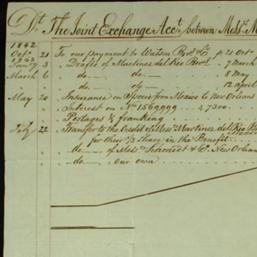 Dr. The Joint Exchange Acct. between Messrs. M
1842
Octr. 21 To our payment to Watson Bros. & Co. p 21 Octr.
1843
Jany. 3 " Drafts of Martinez del Rio Bros. 7 March
March 6 " do. — do — 8 May
" " do. — of — 12 April
May 20 " Insurance on Specie from Mexico to New Orleans
" Interest on Nos. 1569,999 7,300.
" Postages & franking
July 22 " Transfer to the Credit of Messrs Martinez del Rio
for their 1/3 Share in the Benefit
do. — of Messrs Schmidt & Co. New Orleans
do. — " our own